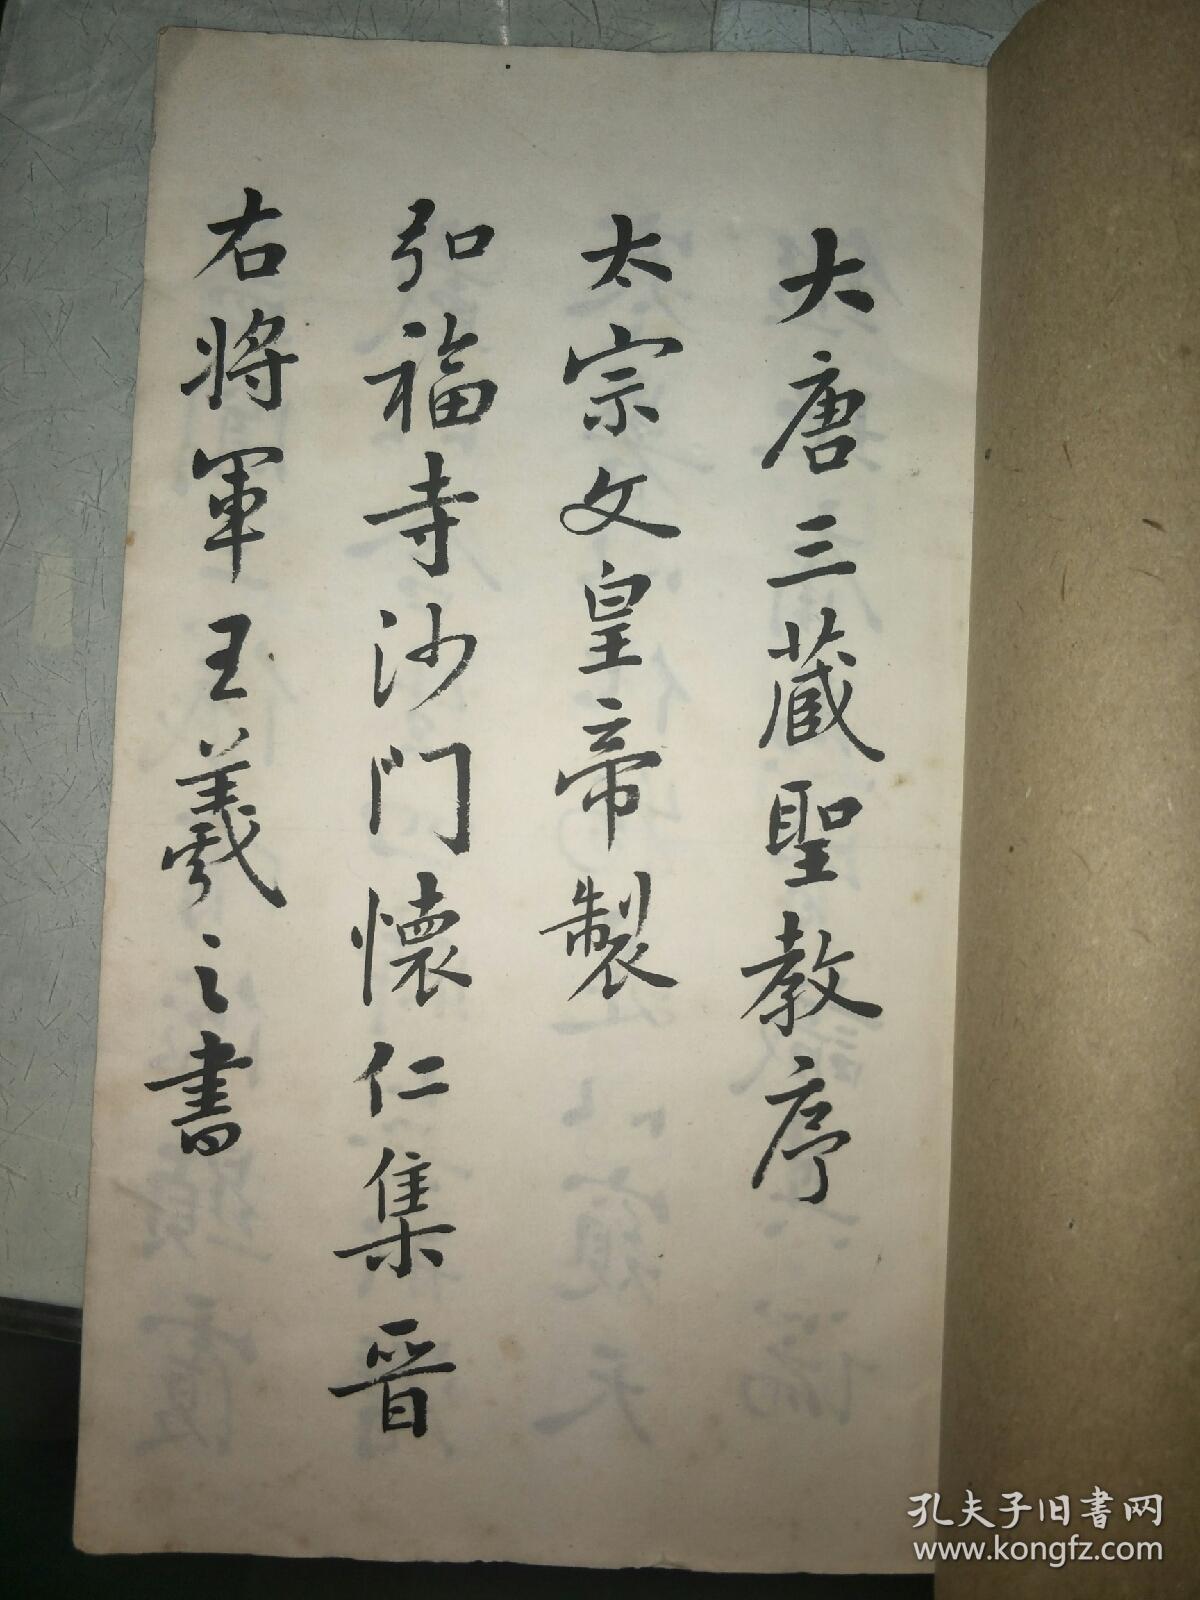 大唐三藏聖教序
太宗文皇帝製
弘福寺沙門懷仁集晉
右將軍王羲之書
孔夫子旧書网
www.kongfz.com